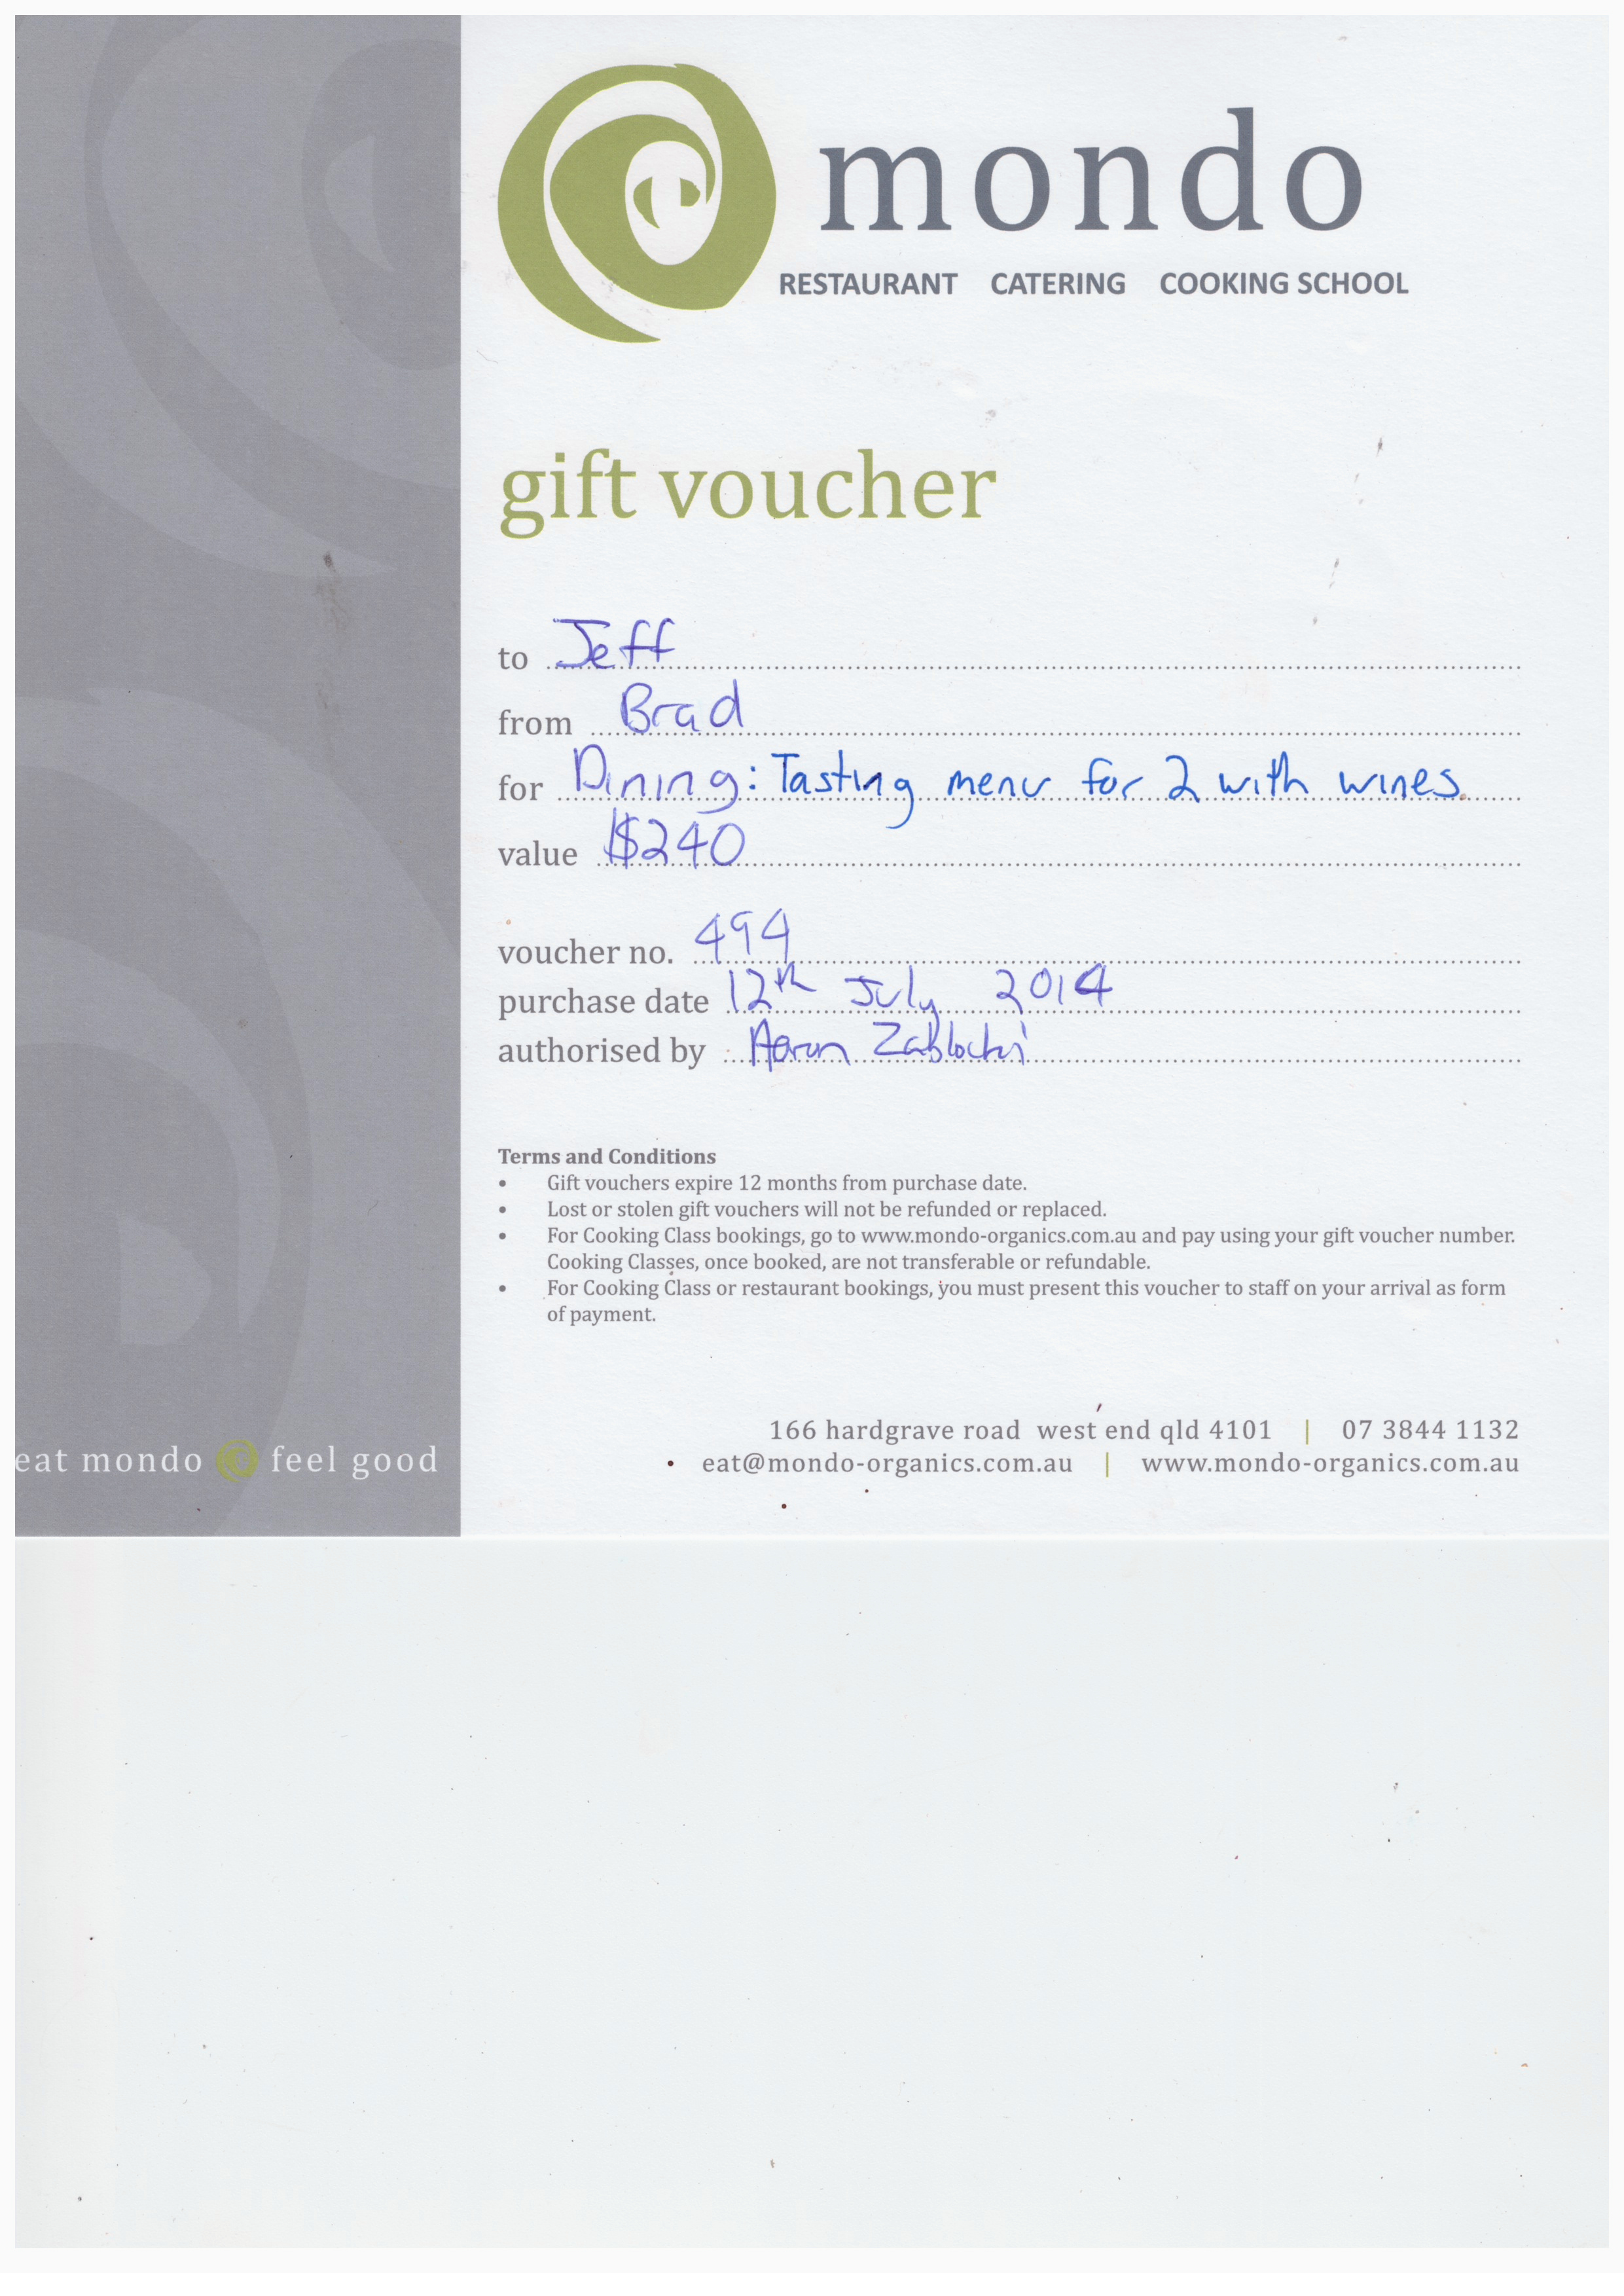 mondo
RESTAURANT CATERING COOKING SCHOOL
gift voucher
to Jeff
from Brad
for Dining: Tasting menu for 2 with wines.
value $240
voucher no. 494
purchase date 12th July 2014
authorised by Aaron Zablocki
Terms and Conditions
• Gift vouchers expire 12 months from purchase date.
• Lost or stolen gift vouchers will not be refunded or replaced.
• For Cooking Class bookings, go to www.mondo-organics.com.au and pay using your gift voucher number.
Cooking Classes, once booked, are not transferable or refundable.
• For Cooking Class or restaurant bookings, you must present this voucher to staff on your arrival as form
of payment.
166 hardgrave road west end qld 4101 | 07 3844 1132
eat@mondo-organics.com.au | www.mondo-organics.com.au
eat mondo feel good